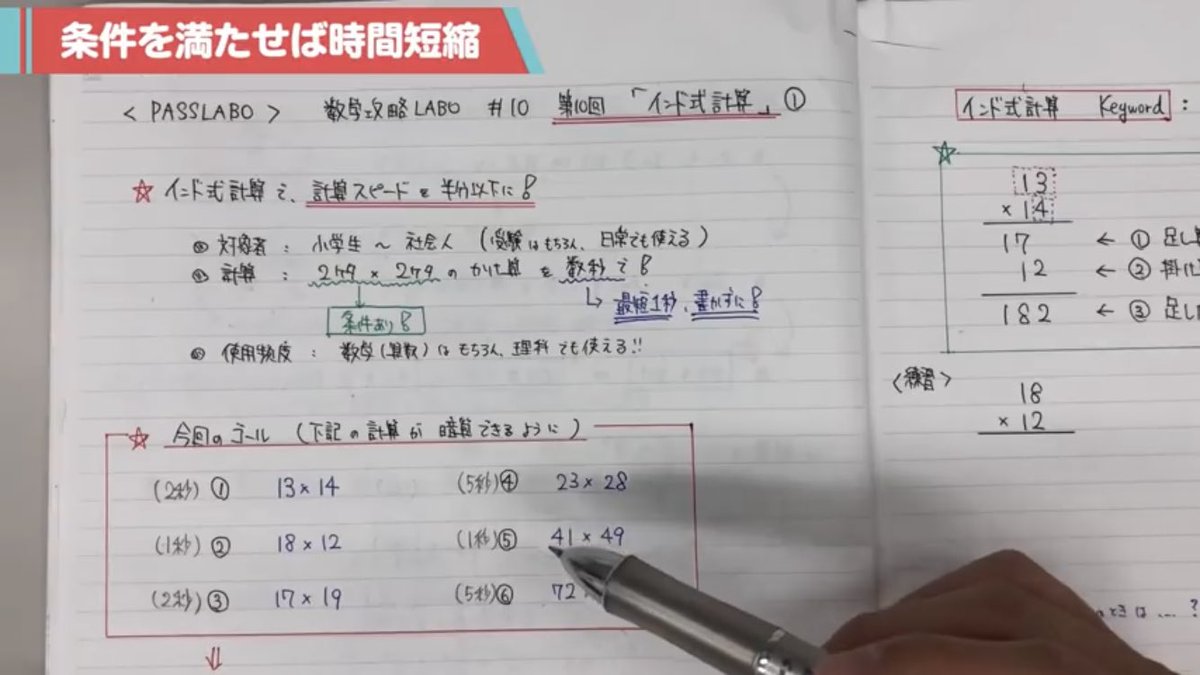 条件を満たせば時間短縮
< PASSLABO > 数学攻略LABO #10 第10回 「インド式計算」①
☆ インド式計算で、計算スピードを半分以下に!
◎ 対象者 : 小学生 〜 社会人 (受験はもちろん、日常でも使える)
◎ 計算 : 2ケタ × 2ケタ の かけ算 を 数秒で!
↳ 最短1秒、書かずに!
条件あり!
◎ 使用頻度 : 数学(算数)はもちろん、理科でも使える!!
☆ 今回のゴール (下記の計算が暗算できるように)
(2秒) ① 13 × 14 (5秒) ④ 23 × 28
(1秒) ② 18 × 12 (1秒) ⑤ 41 × 49
(2秒) ③ 17 × 19 (5秒) ⑥ 72
⇓
インド式計算 Keyword :
☆
13
× 14
17 ← ① 足し
12 ← ② 掛け
182 ← ③ 足し
<練習>
18
× 12
ときは…?